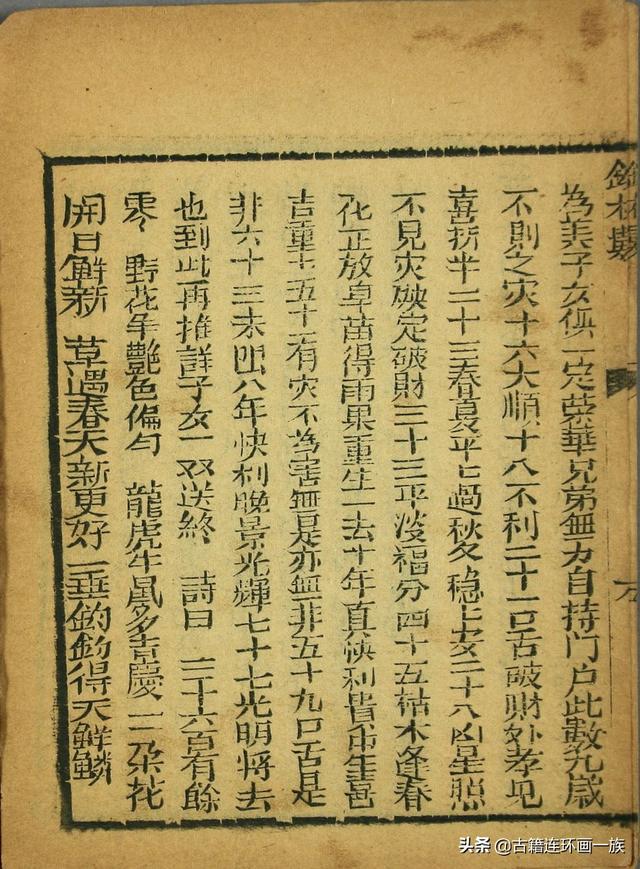 為美子女俱一定荣華兄弟無力自持门户此數九歲
不則之灾十六大順十八不利二十一口舌破財外孝見
喜折半二十三春夏平七過秋冬稳上安二十八凶星照
不見灾殃定破財三十三平淡福分四十五枯木逢春
花正放旱苗得雨果重生一去十年真快利貴
吉重七五十一有灾不為害無是亦無非五十九口舌是
非六十三未出八年快利晚景光輝七十七光明將去
也到此再推詳子女一双送終 詩曰 二十六百有餘
零 野花争艷色偏匀 龍虎牛鼠多吉慶 一朵花
開日鮮新 草遇春天新更好 一垂钓钓得天鮮鱗
头条 @古籍连环画一族